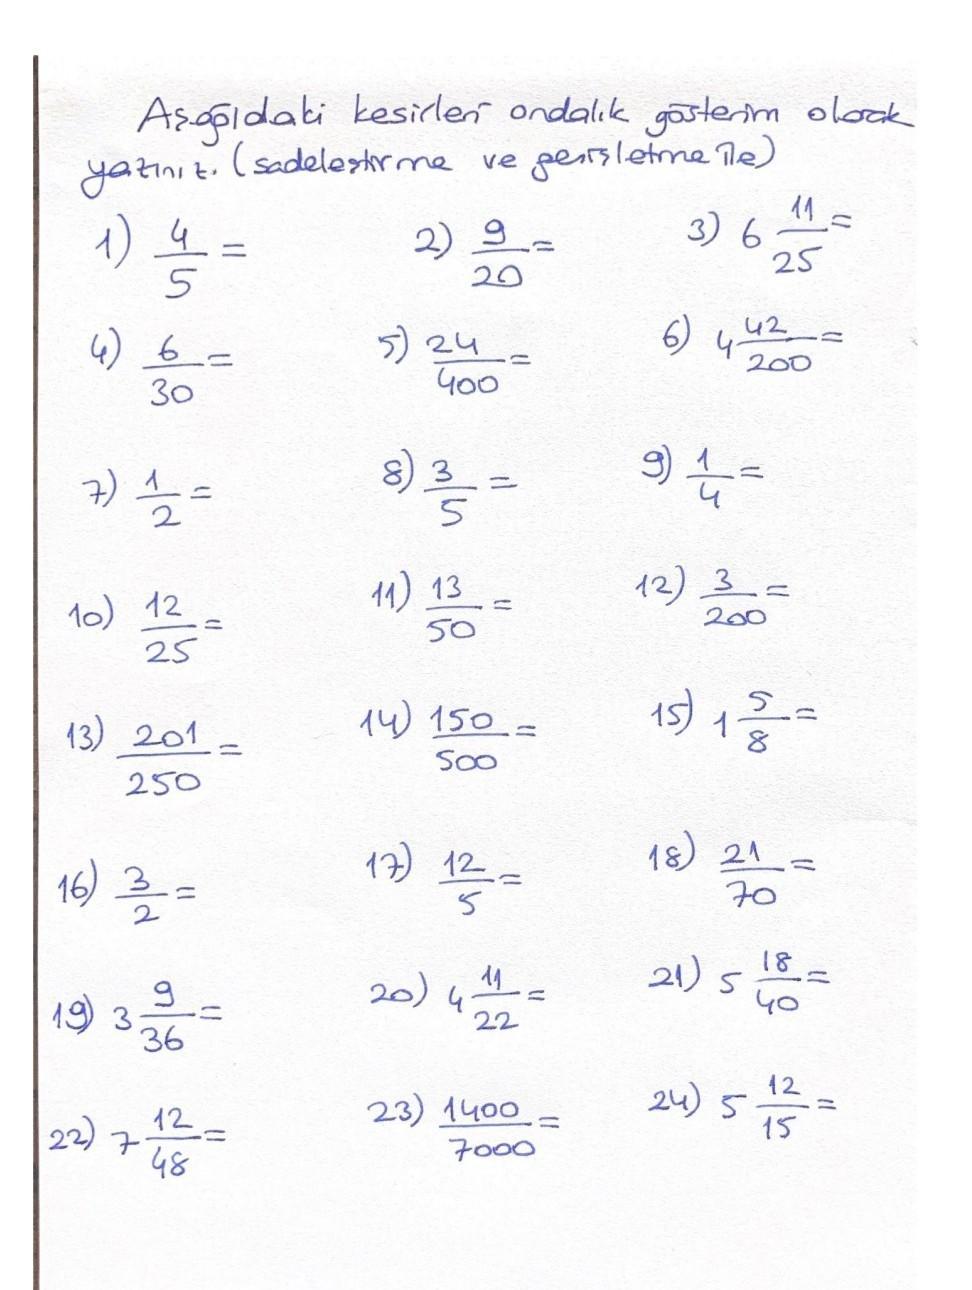 Aşağıdaki kesirleri ondalık gösterim olarak
yazınız. (sadeleştirme ve genişletme ile)
1) 4/5 = 2) 9/20 = 3) 6 11/25 =
4) 6/30 = 5) 24/400 = 6) 4 42/200 =
7) 1/2 = 8) 3/5 = 9) 1/4 =
10) 12/25 = 11) 13/50 = 12) 3/200 =
13) 201/250 = 14) 150/500 = 15) 1 5/8 =
16) 3/2 = 17) 12/5 = 18) 21/70 =
19) 3 9/36 = 20) 4 11/22 = 21) 5 18/40 =
22) 7 12/48 = 23) 1400/7000 = 24) 5 12/15 =